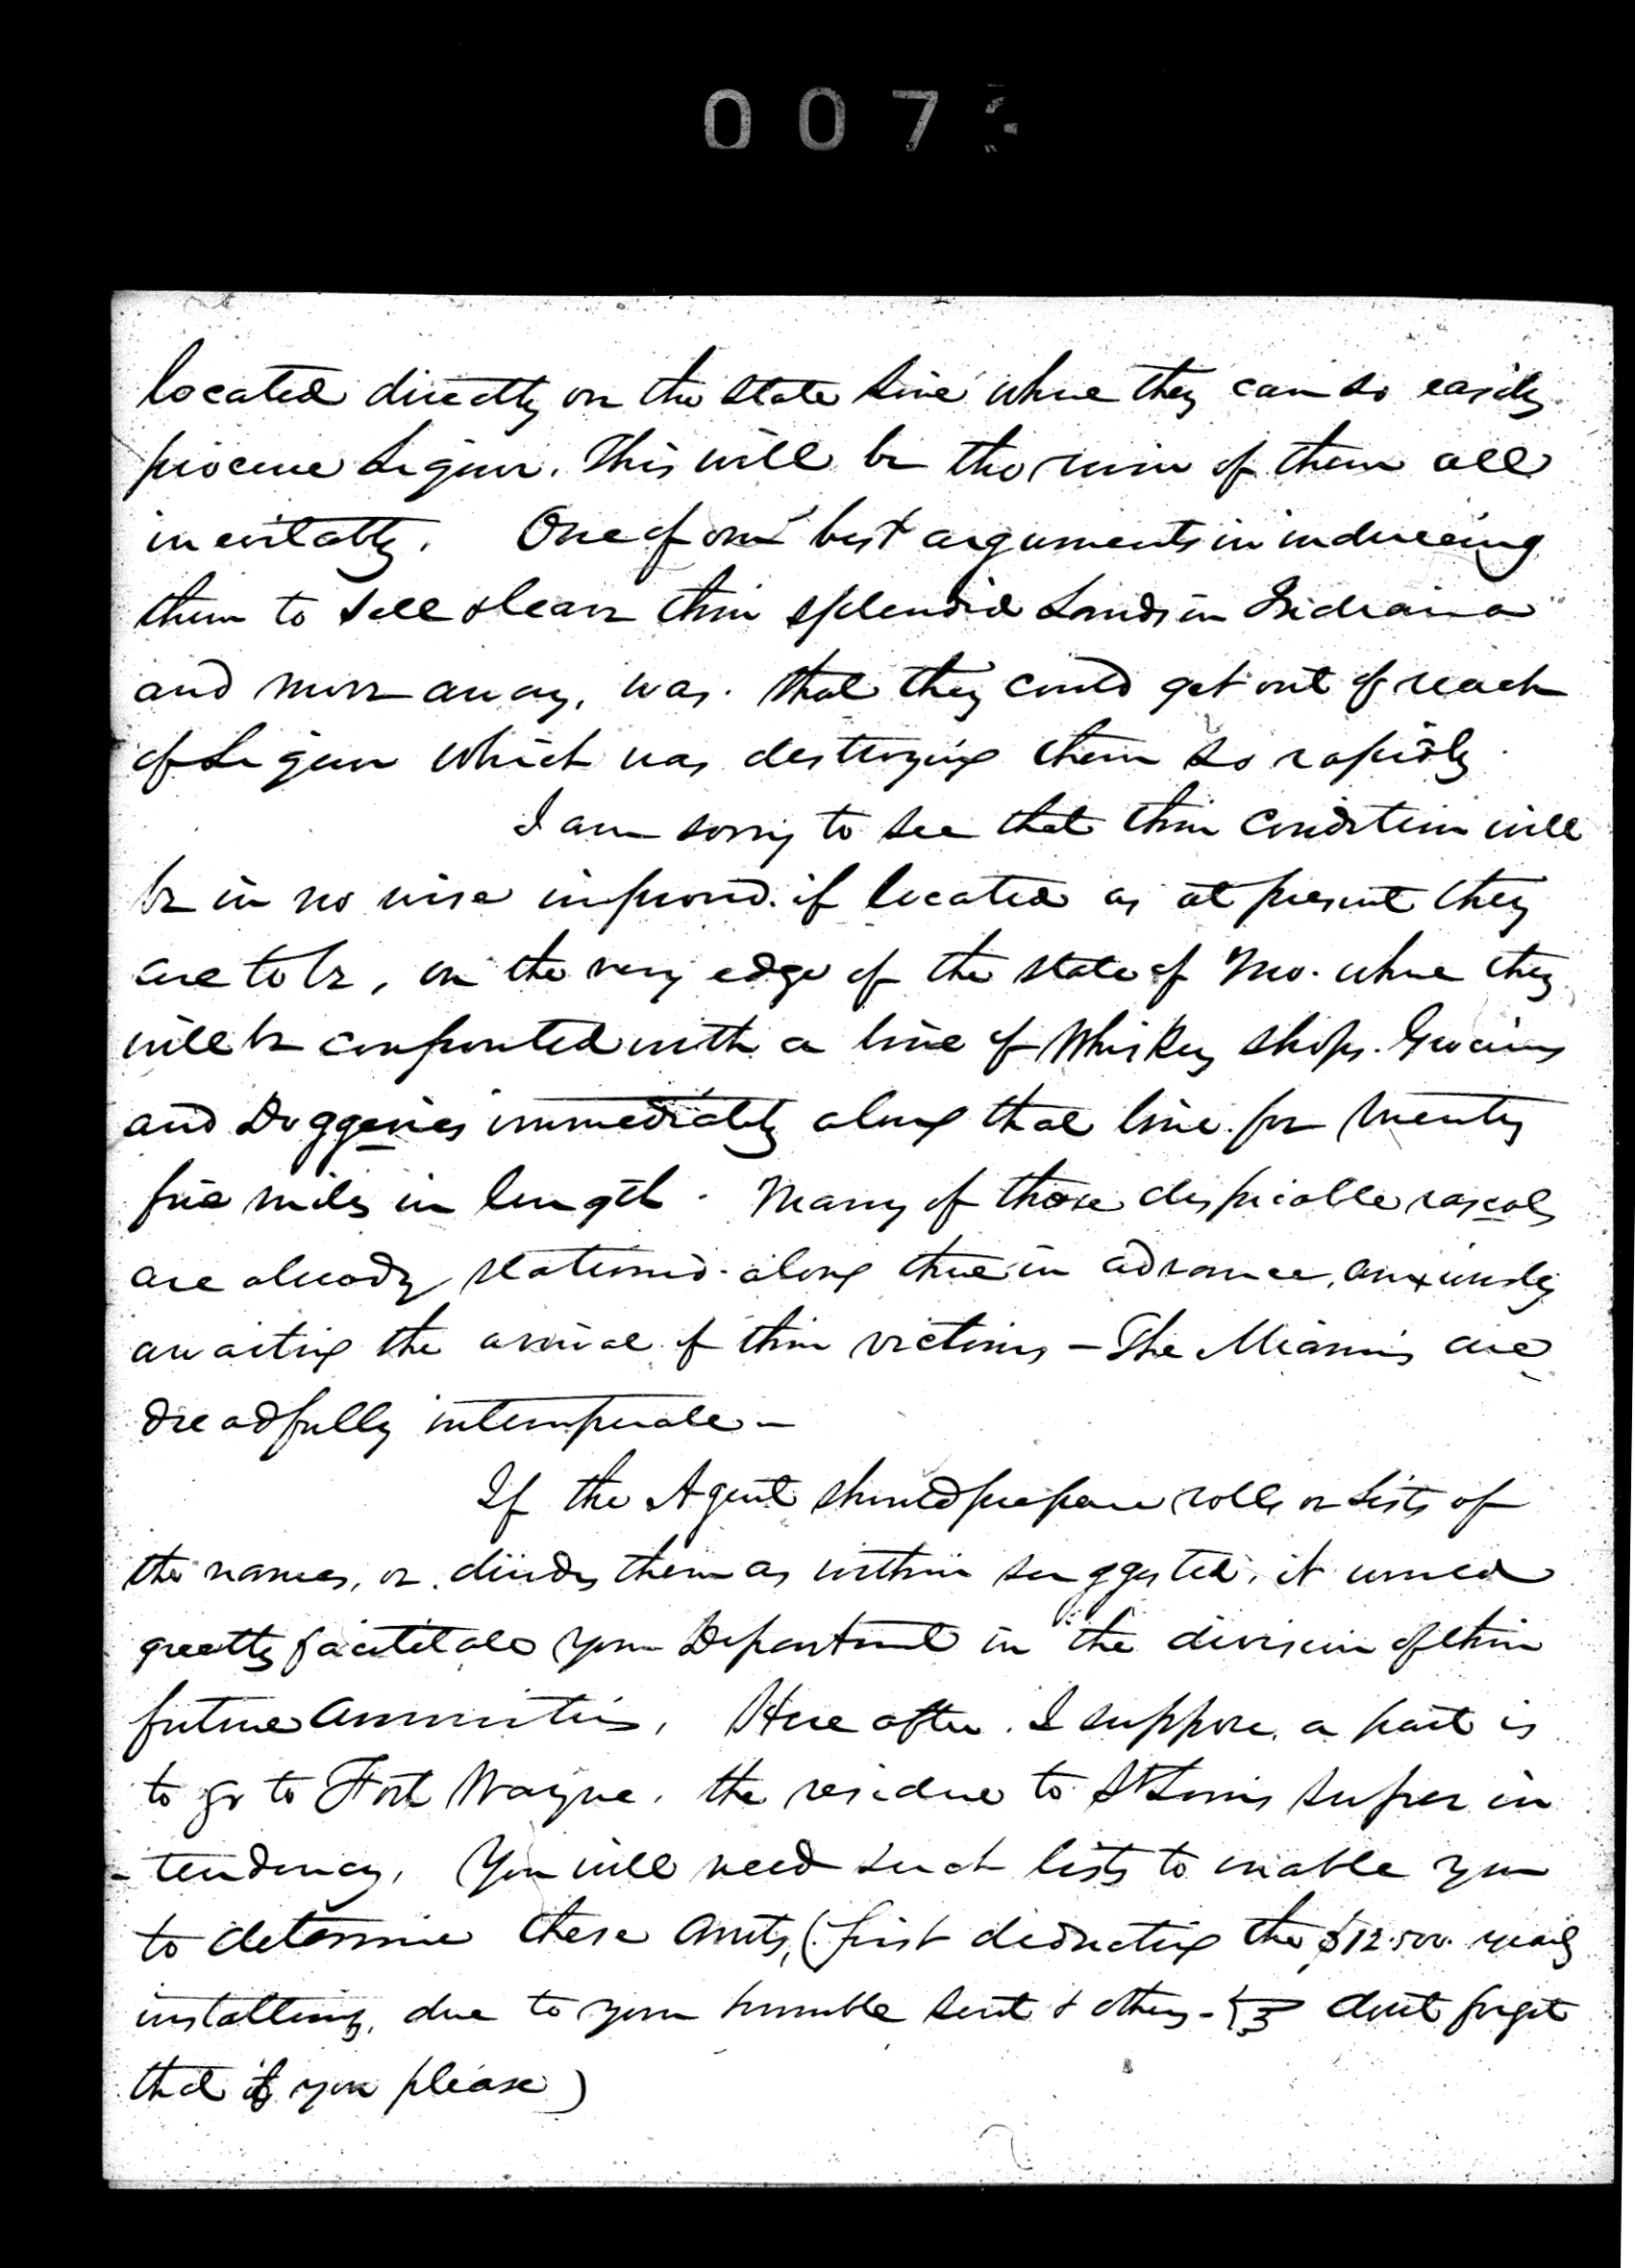 007
located directly on the state line where they can so easily
procure Liquor. This will be the ruin of them all
inevitably. One of our best arguments in inducing
them to sell & leave their splendid Lands in Indiana
and move away, was. that they could get out of reach
of Liquor which was destroying them so rapidly.
I am sorry to see that their condition will
be in no wise improved. if located as at present they
are to be, on the very edge of the state of Mo. where they
will be confronted with a line of Whiskey shops. Groceries
and Doggeries immediately along that line for twenty
five miles in length. Many of those despicable rascals
are already stationed along there in advance, anxiously
awaiting the arrival of their victims – The Miamis are
dreadfully intemperate –
If the Agent should prepare rolls or Lists of
the names, or divides them as within suggested, it would
greatly facilitate your Department in the division of their
future annuities. Here after. I suppose, a part is
to go to Fort Wayne. the residue to St Louis superin
- tendency. You will need such lists to enable you
to determine these amts, (first deducting the $12.500. yearly
installmts, due to your humble servt & others – ☞ dont forget
that if you please)